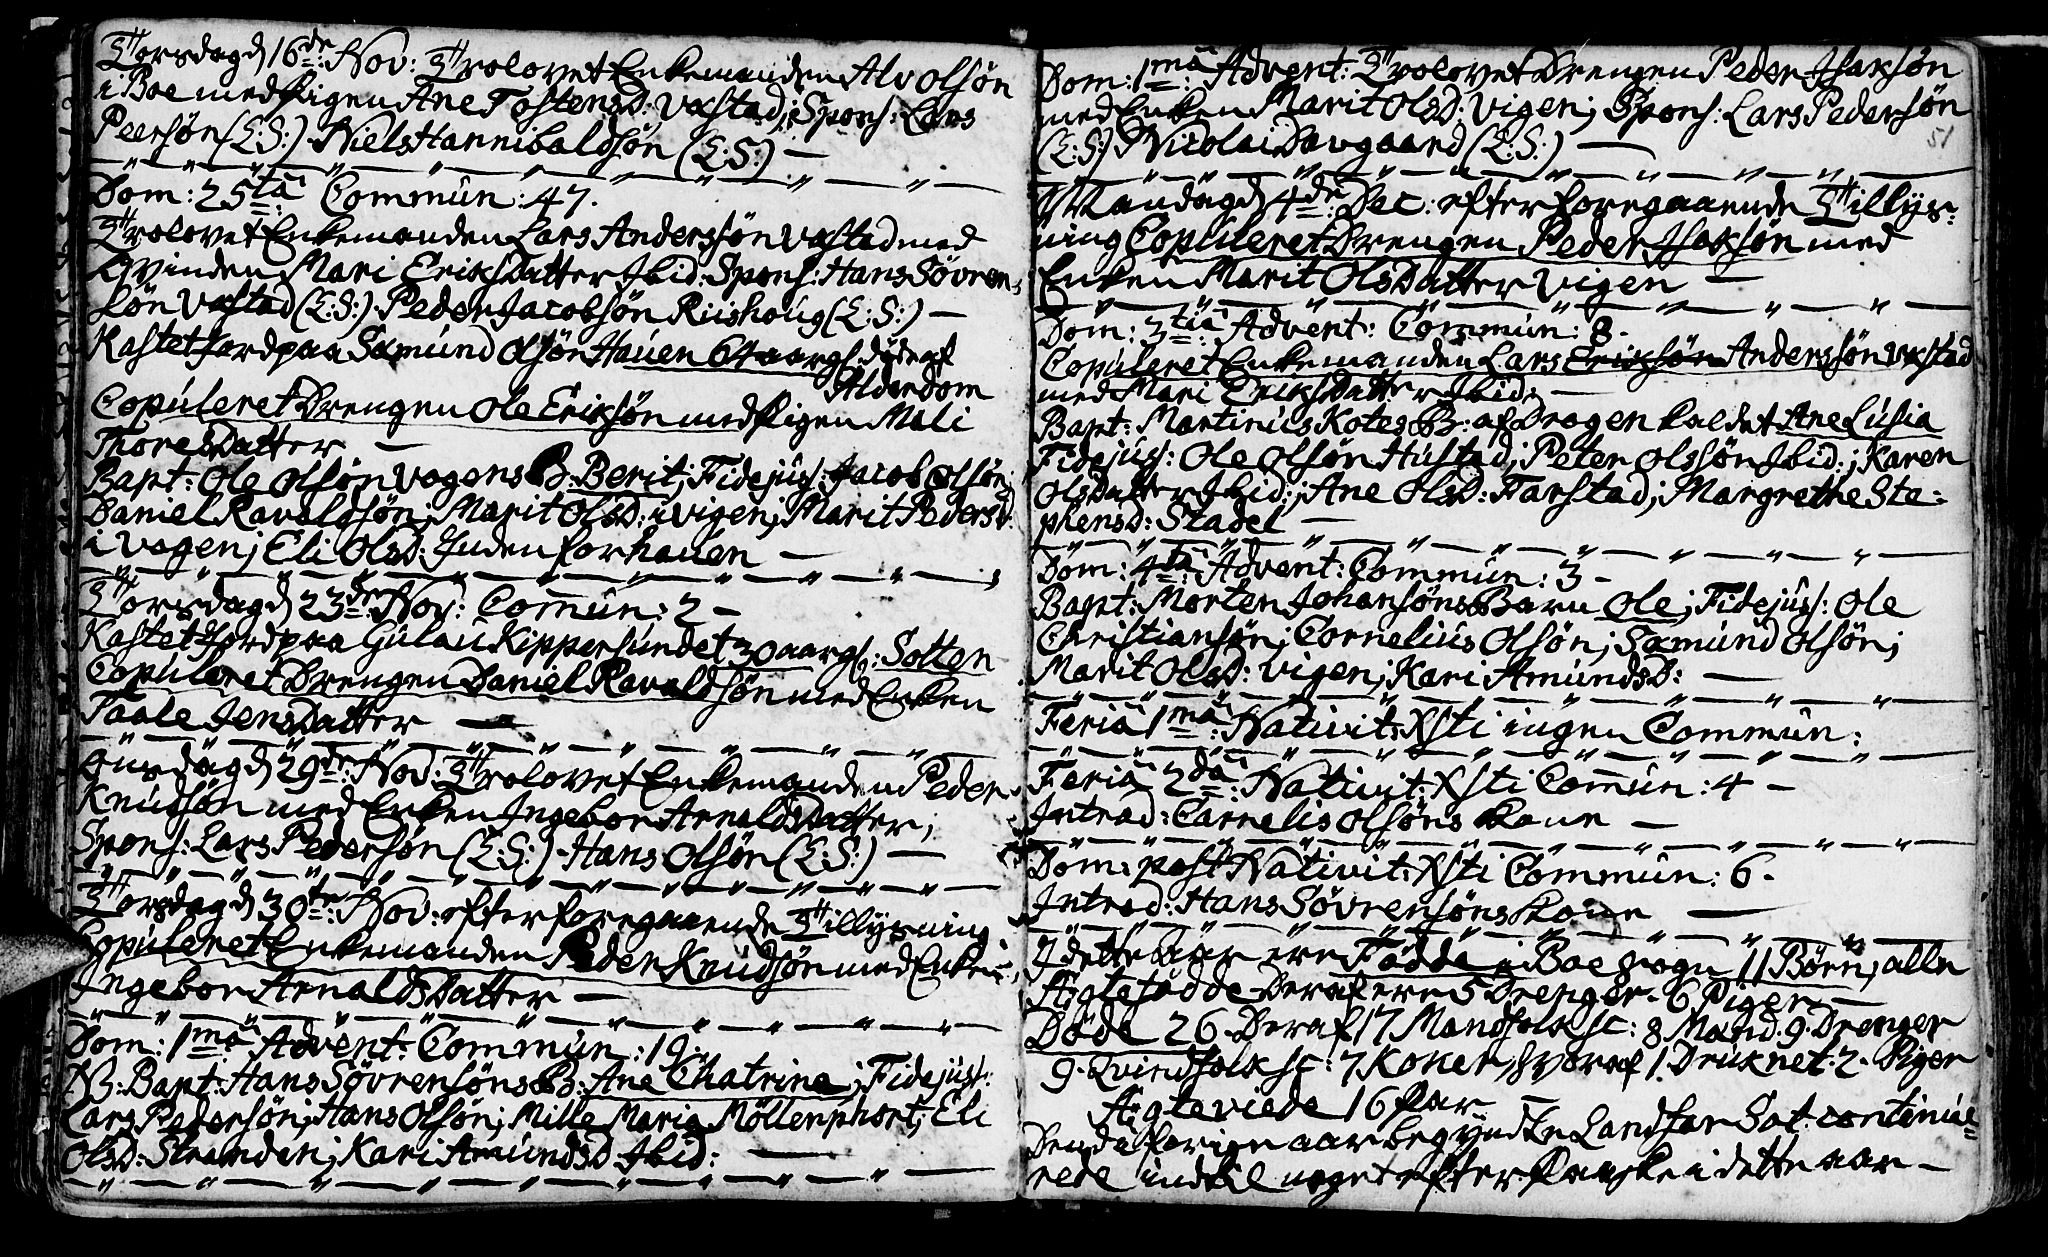 Torsdag d 16de Nov: Trolovet Enkemanden Alv Olsøn
i Boe med Pigen Ane Tostensd: Vastad; Spons: Lars
Peersøn (L:S:) Niels Hannibaldsøn (L:S:) —
Dom: 25ta Commun: 47.
Trolovet Enkemanden Lars Andersøn Vastad med
Qvinden Mari Eriksdatter Ibid: Spons: Hans Søvren-
søn Vastad (L:S:) Peder Jacobsøn Riishoug (L:S:) —
Kastet Jord paa Sæmund Olsøn Hauen 64 aar gl. døde af
Alderdom
Copuleret Drengen Ole Eriksøn med Pigen Mali
Thoresdatter —
Bapt: Ole Olsøn Vogens B: Berit; Fidejuss: Jacob Olsøn;
Daniel Ravaldsøn; Marit Olsd: i Vigen; Marit Pedersd:
i Vogen; Eli Olsd: Inden for hauen —
Torsdag d 23de Nov: Commun: 2 —
Kastet Jord paa Gulau Kippersundet 30 aar gl: Sotten
Copuleret Drengen Daniel Ravaldsøn med Enken
Taale Jensdatter —
Onsdag d 29de Nov: Trolovet Enkemanden Peder
Knudsøn med Enken Ingebor Arnaldsdatter;
Spons: Lars Pedersøn (L:S:) Hans Olsøn (L:S:) —
Torsdag d 30te Nov: efter foregaaende Tillysning
Copuleret Enkemanden Peder Knudsøn med Enken
Ingebor Arnaldsdatter —
Dom: 1ma Advent: Commun: 19.
NB: Bapt: Hans Søvrensøns B: Ane Chatrina; Fidejuss:
Lars Pedersøn; Hans Olsøn; Mille Maria Møllenphort; Eli
Olsd: Stranden; Kari Amundsd Ibid: —
Dom: 1ma Advent: Trolovet Drengen Peder Isaksøn
med Enken Marit Olsd: Vigen; Spons: Lars Pedersøn
(L:S:) Nicolai Davgaard (L:S:) —
51
Mandag d 4de Dec: efter foregaaende Tillys-
ning Copuleret Drengen Peder Isaksøn med
Enken Marit Olsdatter Vigen —
Dom: 3tia Advent: Commun: 8.
Copuleret Enkemanden Lars Eriksøn Andersøn Vastad
med Mari Eriksdatter Ibid: —
Bapt: Martinus Kotes B: af Drogen kaldet Ane Lusia
Fidejuss: Ole Olsøn Hustad; Peter Olssøn Ibid:; Karen
Olsdatter Ibid:; Ane Olsd: Farstad; Margrethe Ste-
phensd: Stadel —
Dom: 4ta Advent: Commun: 3 —
Bapt: Morten Johansøns Barn Ole; Fidejuss: Ole
Christiansøn; Cornelius Olsøn; Sæmund Olsøn;
Marit Olsd: Vigen; Kari Amundsd: —
Feria 1ma Nativit: Xsti ingen Commun:
Feria 2da Nativit: Xsti Commun: 4 —
Introd: Carnelis Olsøns Kone —
Dom: post Nativit: Xsti Commun: 6.
Introd: Hans Søvrensøns Kone —
I dette Aar ere Fødde i Boe sogn 11 Børn, alle
Ægtefødde Deraf ere 5 Drenger. 6 Piger —
Døde 26. Deraf 17 Mandfolk sc: 8 Mænd. 9 Drenger
9. Qvindfolk sc: 7 Koner, hvoraf 1. Druknet. 2. Piger
Ægteviede 16 Par —
Den da forige aar begyndte Landfar Sot continue-
rede indtil noget efter Paaske i dette aar —